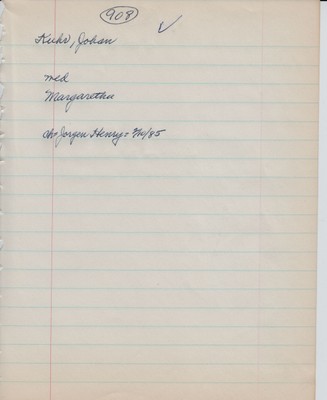 908
Kuhr, Johan
med
Margaretha
ch: Jorgen Henry = /85